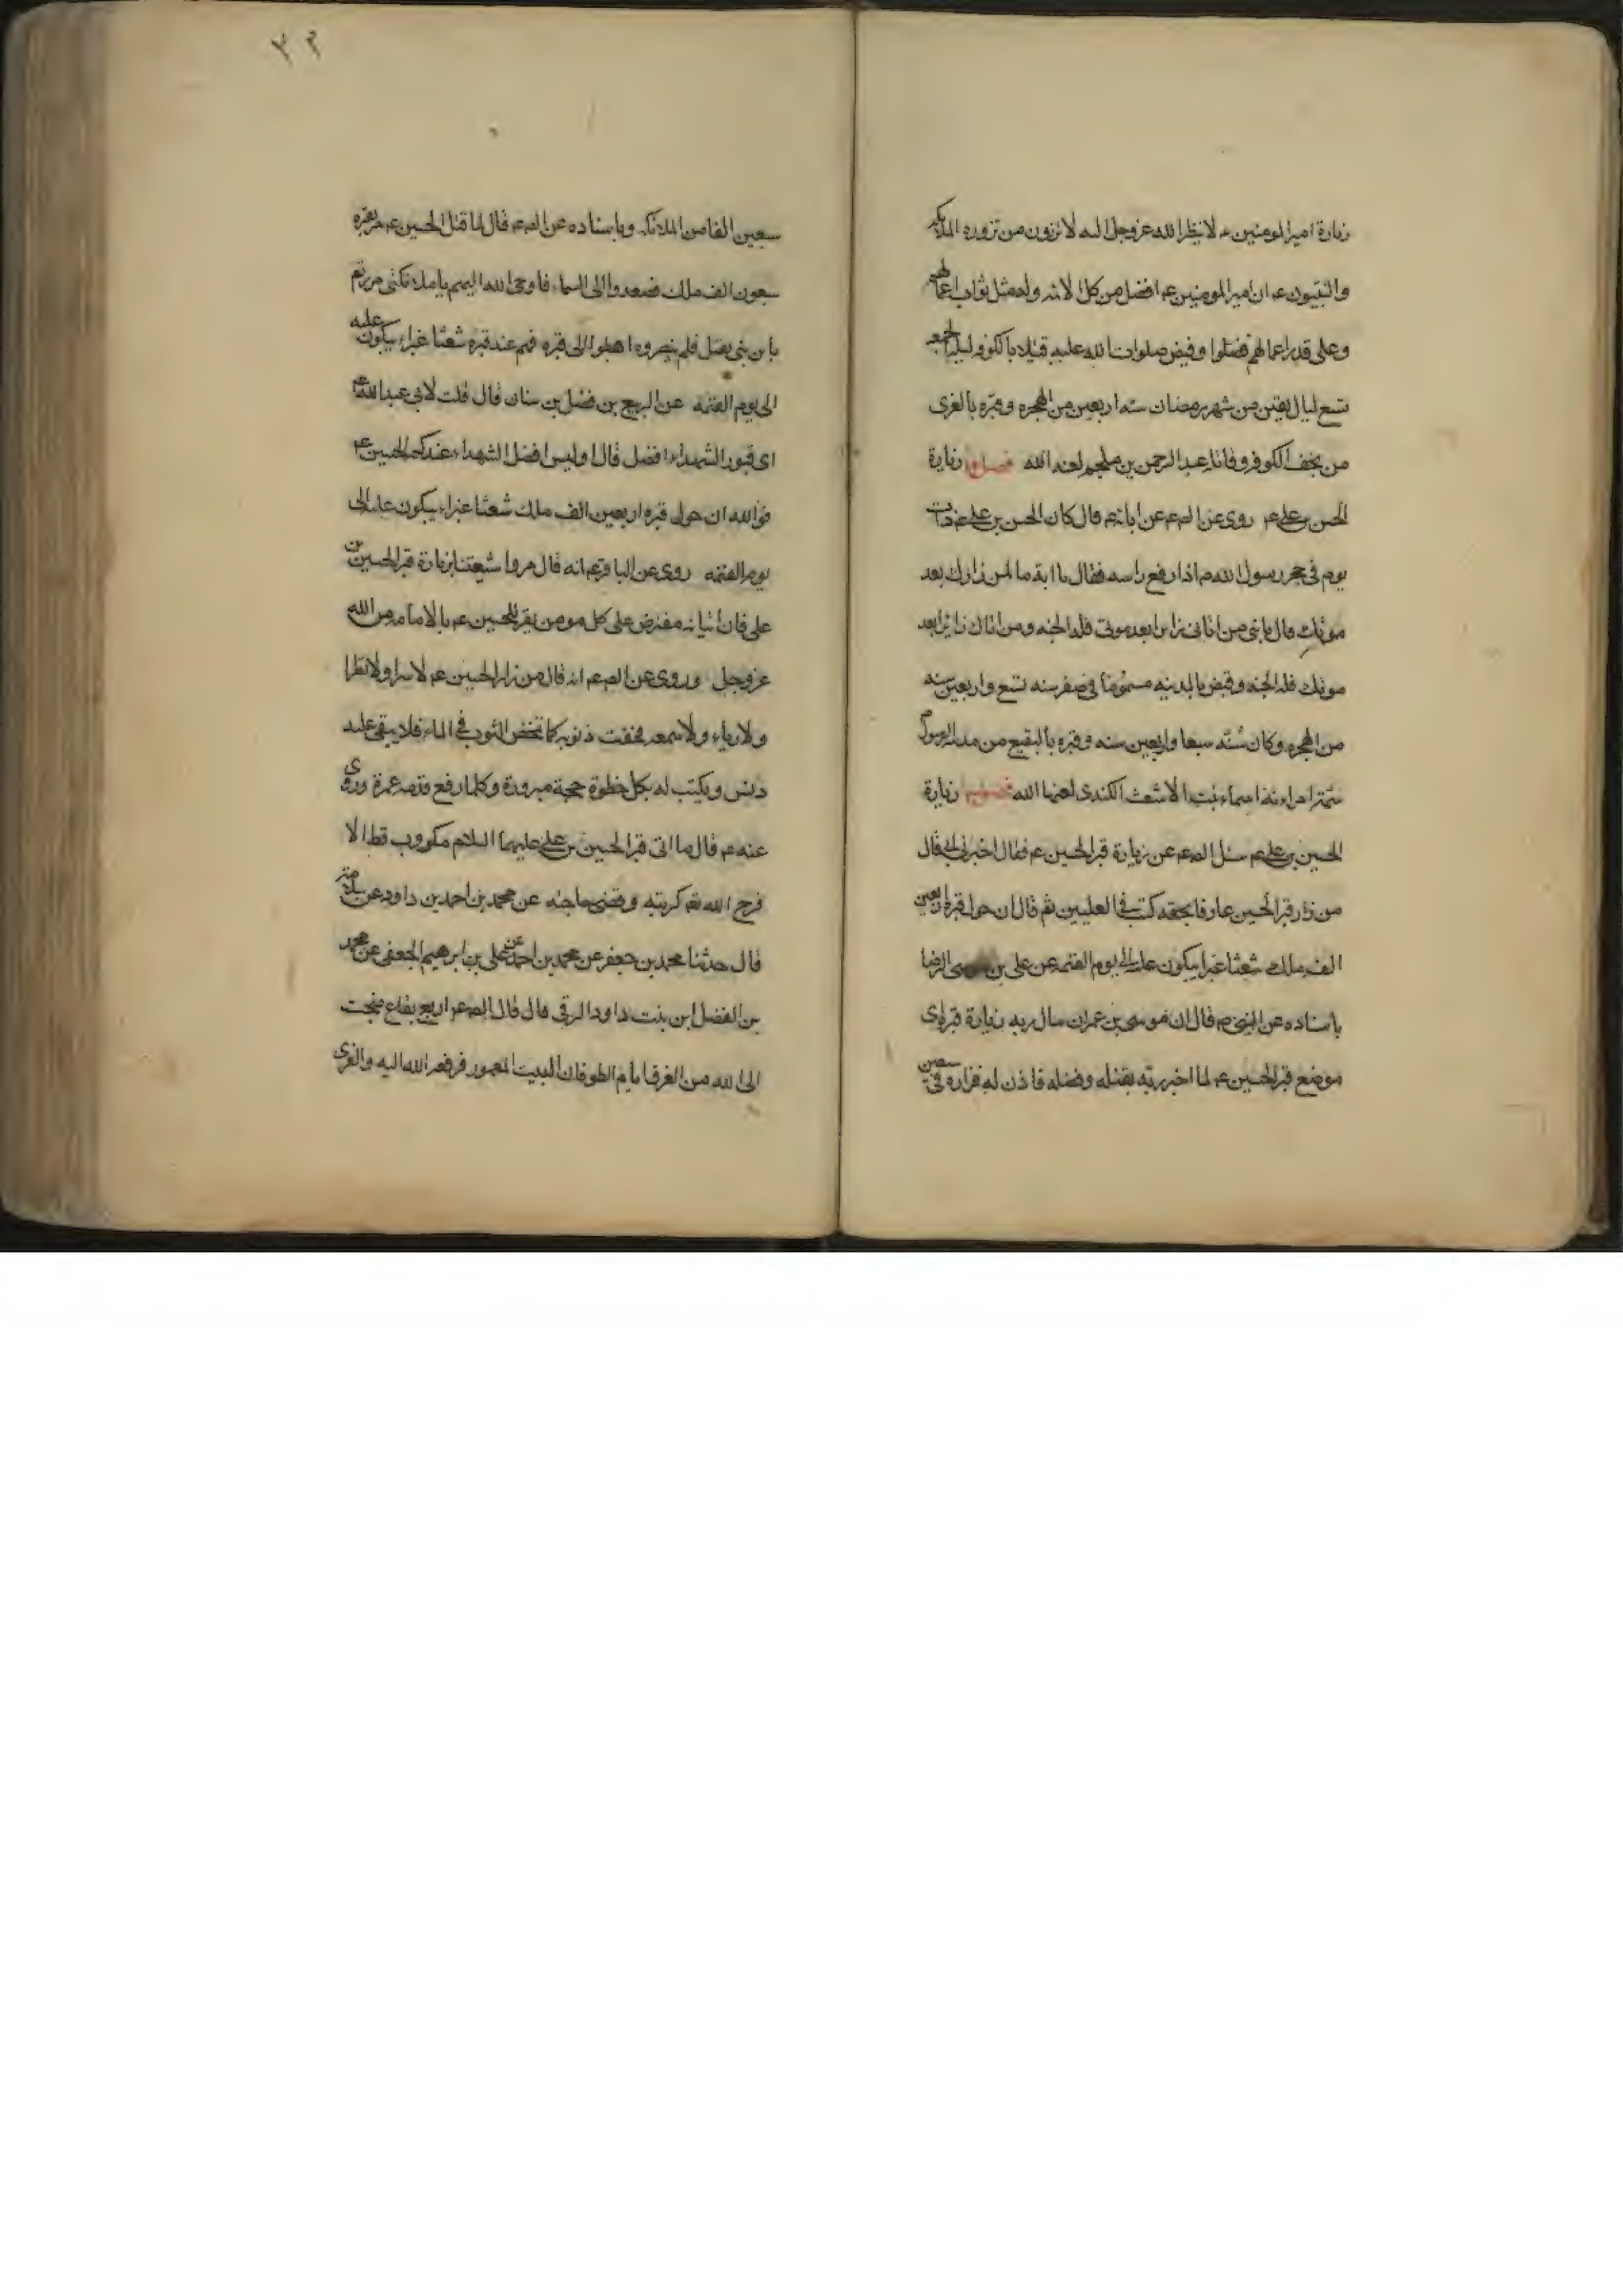 زيارة اميرالمومنين ع لا ينظر الله عزوجل اليه لا تزورن من تزوره الملائكه
والنبيون ع ان اميرالمومنين ع افضل من كل الائمه وله مثل ثواب اعمالهم
وعلى قدر اعمالهم فضلوا وقبض صلوات الله عليه قتيلا بالكوفه ليلة الجمعه
تسع ليال بقين من شهر رمضان سنه اربعين من الهجره وقبره بالغرى
من نجف الكوفه وقاتله عبد الرحمن بن ملجم لعنه الله فصل زيارة
الحسن بن على ع روى عن الصع عن ابائه ع قال كان الحسن بن على ع ذات
يوم فى حجر رسول الله ص اذا رفع راسه فقال يا ابة ما لمن زارك بعد
موتك قال يا بنى من اتانى زائرا بعد موتى فله الجنه ومن اتاك زائرا بعد
موتك فله الجنه وقبض بالمدينه مسموما فى صفر سنه تسع واربعين سنه
من الهجره وكان سنّه سبعا واربعين سنه وقبره بالبقيع من مدينة الرسول ص
سمّته امراءته اسماء بنت الاشعث الكندى لعنها الله فصل زيارة
الحسين بن على ع سئل الصع عن زيارة قبر الحسين ع فقال اخبرنى ابى قال
من زار قبر الحسين عارفا بحقه كتب فى العليين ثم قال ان حول قبره سبعين
الف ملك شعثا غبرا يبكون عليه الى يوم القيمه عن على بن موسى الرضا
باسناده عن النبى ص قال ان موسى بن عمران سال ربه زيارة قبر
موضع قبر الحسين ع لما اخبر ربّه بقتله وفضله فاذن له فزاره فى سبعين
سبعين الفا من الملائكه وباسناده عن الصع قال لما قتل الحسين ع مر بقبره
سبعون الف ملك فصعدوا الى السماء فاوحى الله اليهم يا ملائكتى مررتم
بابن نبى يقتل فلم تنصروه اهبطوا الى قبره فهم عند قبره شعثا غبراء يبكون عليه
الى يوم القيمه عن الربيع بن فضل بن سنان قال قلت لابى عبد الله ع
اى قبور الشهداء افضل قال اوليس افضل الشهداء عندكم الحسين ع
فوالله ان حول قبره اربعين الف ملك شعثا غبراء يبكون عليه الى
يوم القيمه روى عن الباقر ع انه قال مروا شيعتنا بزيارة قبر الحسين بن
على فان اتيانه مفترض على كل مومن يقر للحسين ع بالامامه من الله
عزوجل وروى عن الصع انه قال من زار الحسين ع لا اشرا ولا بطرا
ولا رياء ولا سمعه محضت ذنوبه كما تمحض الثوب فى الماء فلا يبقى عليه
دنس ويكتب له بكل خطوة حجة مبرورة وكلما رفع قدمه عمرة وروى
عنه ع قال ما اتى قبر الحسين بن على عليهما السلام مكروب قط الا
فرج الله تع كربته وقضى حاجته عن محمد بن احمد بن داود عن سلامه
قال حدثنا محمد بن جعفر عن محمد بن احمد عن على بن ابرهيم الجعفى عن محمد
بن الفضل ابن بنت داود الرقى قال قال الصع اربع بقاع ضجت
الى الله من الغرق ايام الطوفان البيت المعمور فرفعه الله اليه والغرى